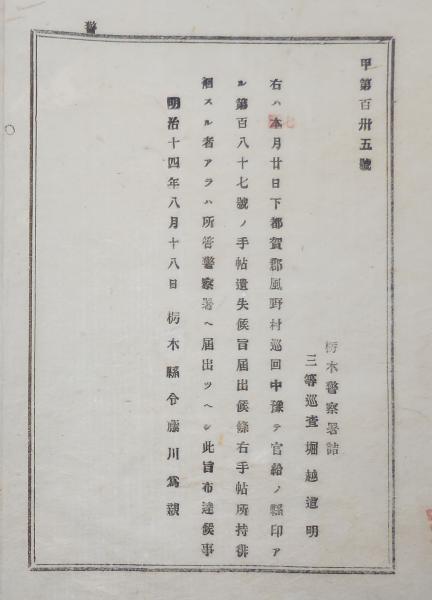 警
甲第百卅五號
栃木警察署詰
三等巡査堀越道明
右ハ本月廿日下都賀郡風野村巡回中豫テ官給ノ縣印ア
ル第百八十七號ノ手帖遺失候旨届出候條右手帖所持徘
徊スル者アラハ所管警察署ヘ届出ツヘシ此旨布達候事
明治十四年八月十八日 栃木縣令藤川爲親